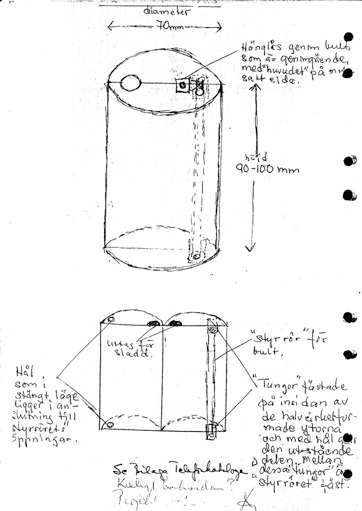 diameter
70mm
Hänglås genom bult
som är genomgående,
med "huvudet" på
satt sida.
höjd
90-100 mm
uttag för
sladd.
"Styrrör" för
bult.
Hål
som i
stängt läge
ligger i an-
slutning till
styrrörets
öppningar.
"Tungor" fästade
på insidan av
de halvcirkelfor-
made ytorna
och med hål
den utstående
delen. Mellan
dessa "tungor" är
"styrröret" fäst.
Se bilaga Telefonkatalog